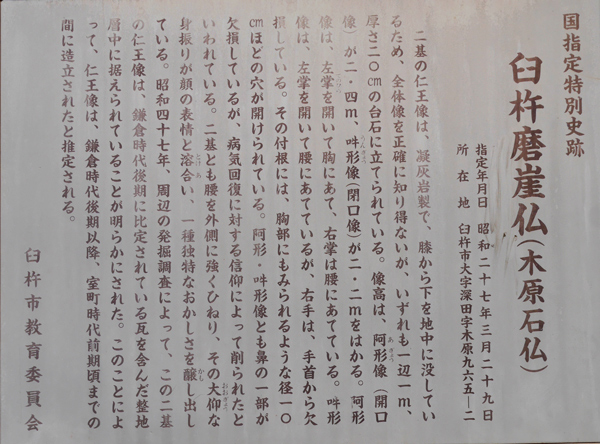 国指定特別史跡
臼杵磨崖仏(木原石仏)
指定年月日 昭和二十七年三月二十九日
所在地 臼杵市大字深田字木原九六五―二
二基の仁王像は、凝灰岩製で、膝から下を地中に没してい
るため、全体像を正確に知り得ないが、いずれも一辺一m、
厚さ二〇㎝の台石に立てられている。像高は、阿形像(開口
像)が二・四m、吽形像(閉口像)が二・二mをはかる。阿形
像は、左掌を開いて胸にあて、右掌は腰にあてている。吽形
像は、左掌を開いて腰にあてているが、右手は、手首から欠
損している。その付根には、胸部にもみられるような径一〇
㎝ほどの穴が開けられている。阿形・吽形像とも鼻の一部が
欠損しているが、病気回復に対する信仰によって削られたと
いわれている。二基とも腰を外側に強くひねり、その大仰な
身振りが顔の表情と溶合い、一種独特なおかしさを醸し出し
ている。昭和四十七年、周辺の発掘調査によって、この二基
の仁王像は、鎌倉時代後期に比定されている瓦を含んだ整地
層中に据えられていることが明らかにされた。このことによ
って、仁王像は、鎌倉時代後期以降、室町時代前期頃までの
間に造立されたと推定される。
臼杵市教育委員会